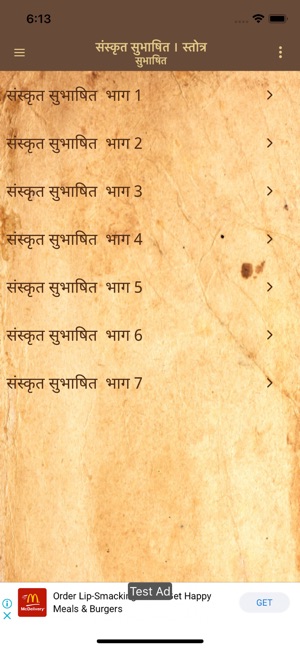 6:13
संस्कृत सुभाषित । स्तोत्र
सुभाषित
संस्कृत सुभाषित भाग 1
संस्कृत सुभाषित भाग 2
संस्कृत सुभाषित भाग 3
संस्कृत सुभाषित भाग 4
संस्कृत सुभाषित भाग 5
संस्कृत सुभाषित भाग 6
संस्कृत सुभाषित भाग 7
Test Ad
Order Lip-Smacking et Happy
Meals & Burgers
GET
McDelivery